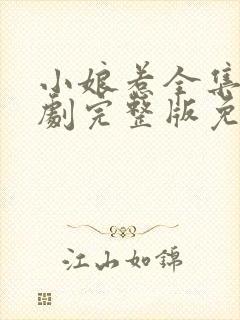 小娘惹全集
劇完整版免
江山如錦